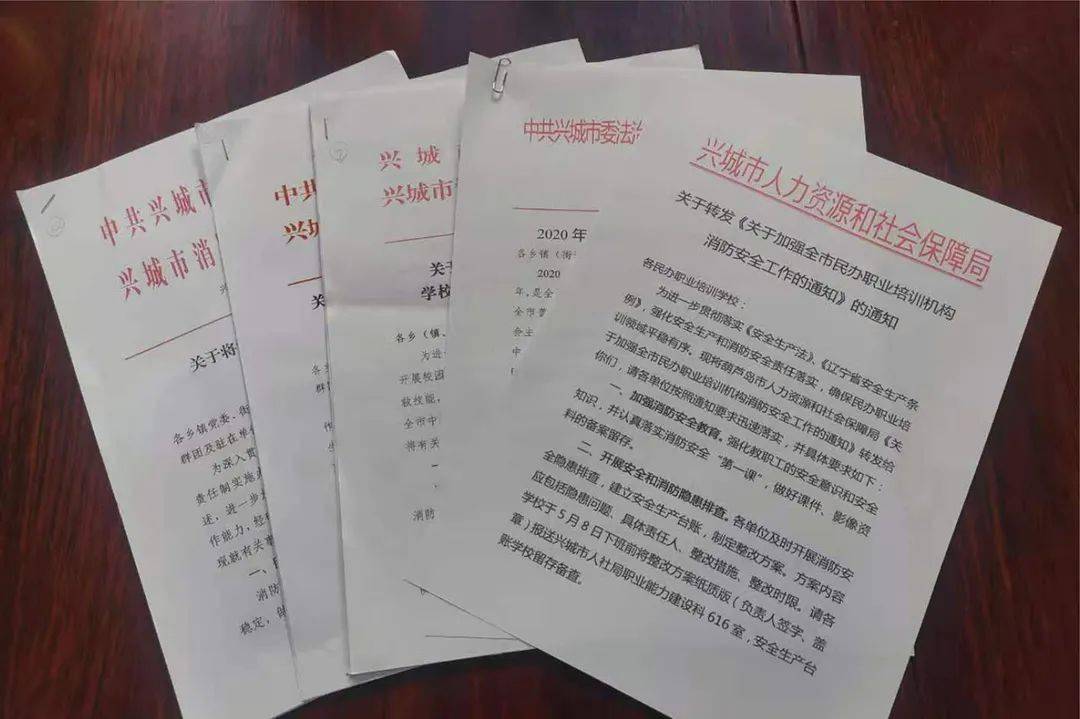 中共兴城市
兴城市消
关于将
各乡镇党委、街
群团及驻在单
为深入贯
责任制实施
述，进一步
作能力，经
现就有关事
一、
消防
稳定，
中共
兴城
关
群团
兴城
兴城市
关于
学校
各乡（镇、
为进
开展校园
救技能，
全市中
将有关
一
消防
中共兴城市委法治
2020 年
各乡镇（街
2020
年，是全
全市普
会主
中
兴城市人力资源和社会保障局
关于转发《关于加强全市民办职业培训机构
消防安全工作的通知》的通知
各民办职业培训学校：
为进一步贯彻落实《安全生产法》、《辽宁省安全生产条
例》，强化安全生产和消防安全责任落实，确保民办职业培
训领域平稳有序。现将葫芦岛市人力资源和社会保障局《关
于加强全市民办职业培训机构消防安全工作的通知》转发给
你们，请各单位按照通知要求迅速落实，并具体要求如下：
一、加强消防安全教育。强化教职工的安全意识和安全
知识，并认真落实消防安全“第一课”，做好课件、影像资
料的备案留存。
二、开展安全和消防隐患排查。各单位及时开展消防安
全隐患排查，建立安全生产台账，制定整改方案。方案内容
应包括隐患问题、具体责任人、整改措施、整改时限。请各
学校于5月8日下班前将整改方案纸质版（负责人签字、盖
章）报送兴城市人社局职业能力建设科616室，安全生产台
账学校留存备查。